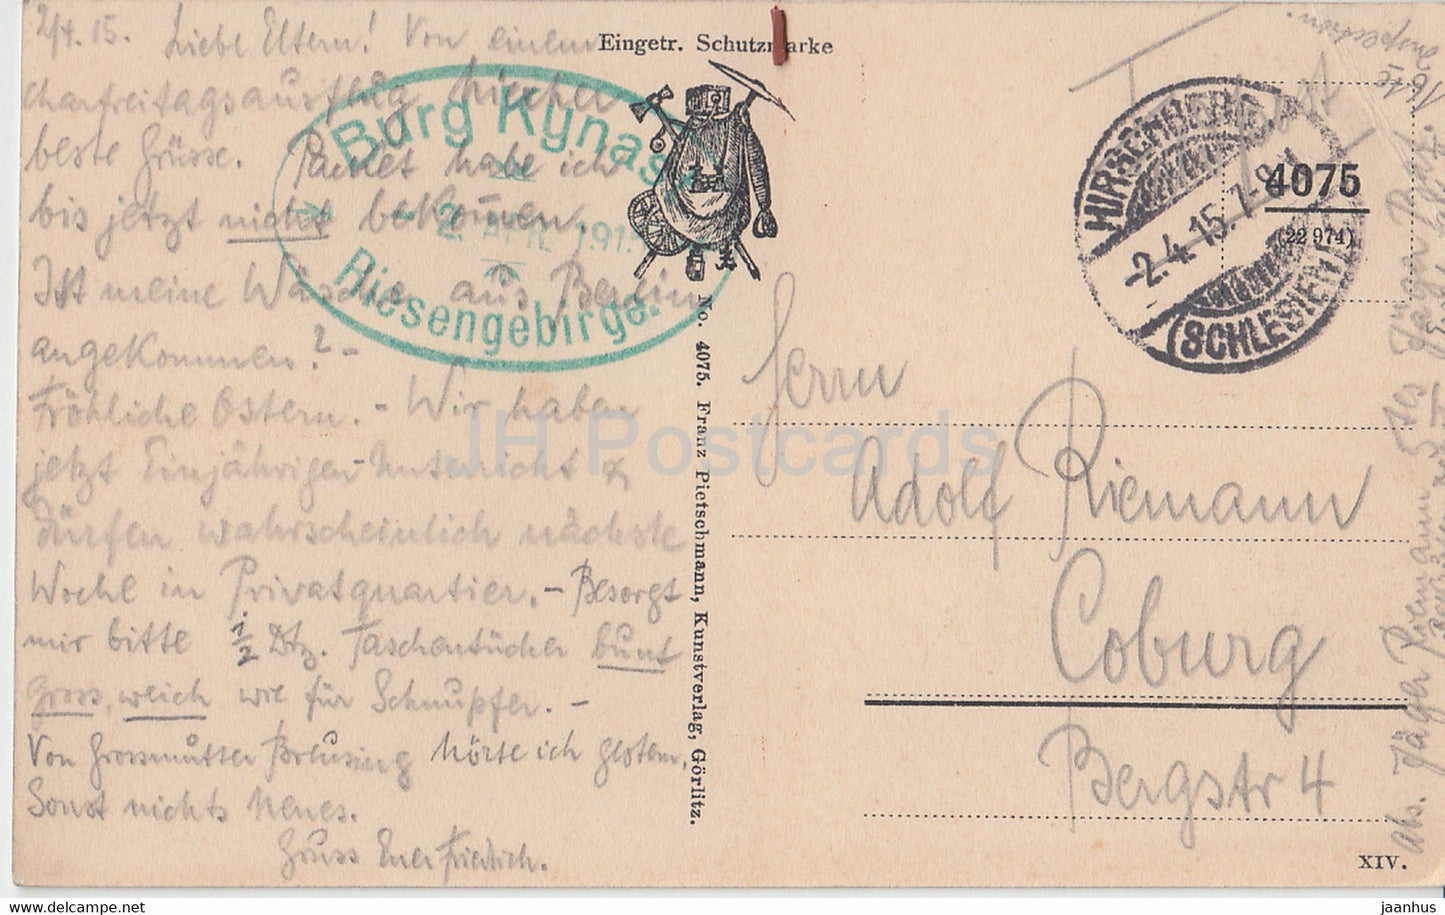 2/4.15. Liebe Eltern! Von einem
Charfreitagsausflug hierher
beste Grüsse. Packet habe ich
bis jetzt nicht bekommen.
Ist meine Wäsche aus Berlin
angekommen? -
Fröhliche Ostern. - Wir haben
jetzt Einjährigen-Unterricht &
dürfen wahrscheinlich nächste
Woche in Privatquartier. - Besorgt
mir bitte ½ Dtz. Taschentücher bunt
gross, weich wie für Schnupfer. -
Von Grossmutter Breusing hörte ich gestern.
Sonst nichts Neues.
Gruss Euer Friedrich.
Burg Kynast
2. APR. 1915
Riesengebirge.
Eingetr. Schutzmarke
No. 4075. Franz Pietschmann, Kunstverlag, Görlitz.
HIRSCHBERG
-2.4.15. 7-8 N
(SCHLESIEN)
4075
(22 974)
Herrn
Adolf Riemann
Coburg
Bergstr 4
XIV.
Abs. Jäger Riemann 5tes Jäger
JH Postcards
2022-08-14
jaanhus